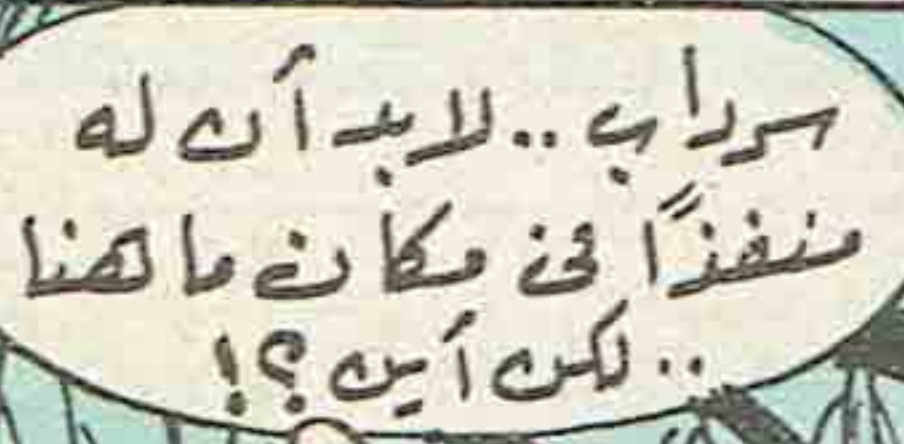 سرداب.. لابد أن له
منفذًا فى مكان ما هنا
.. لكن أين؟!